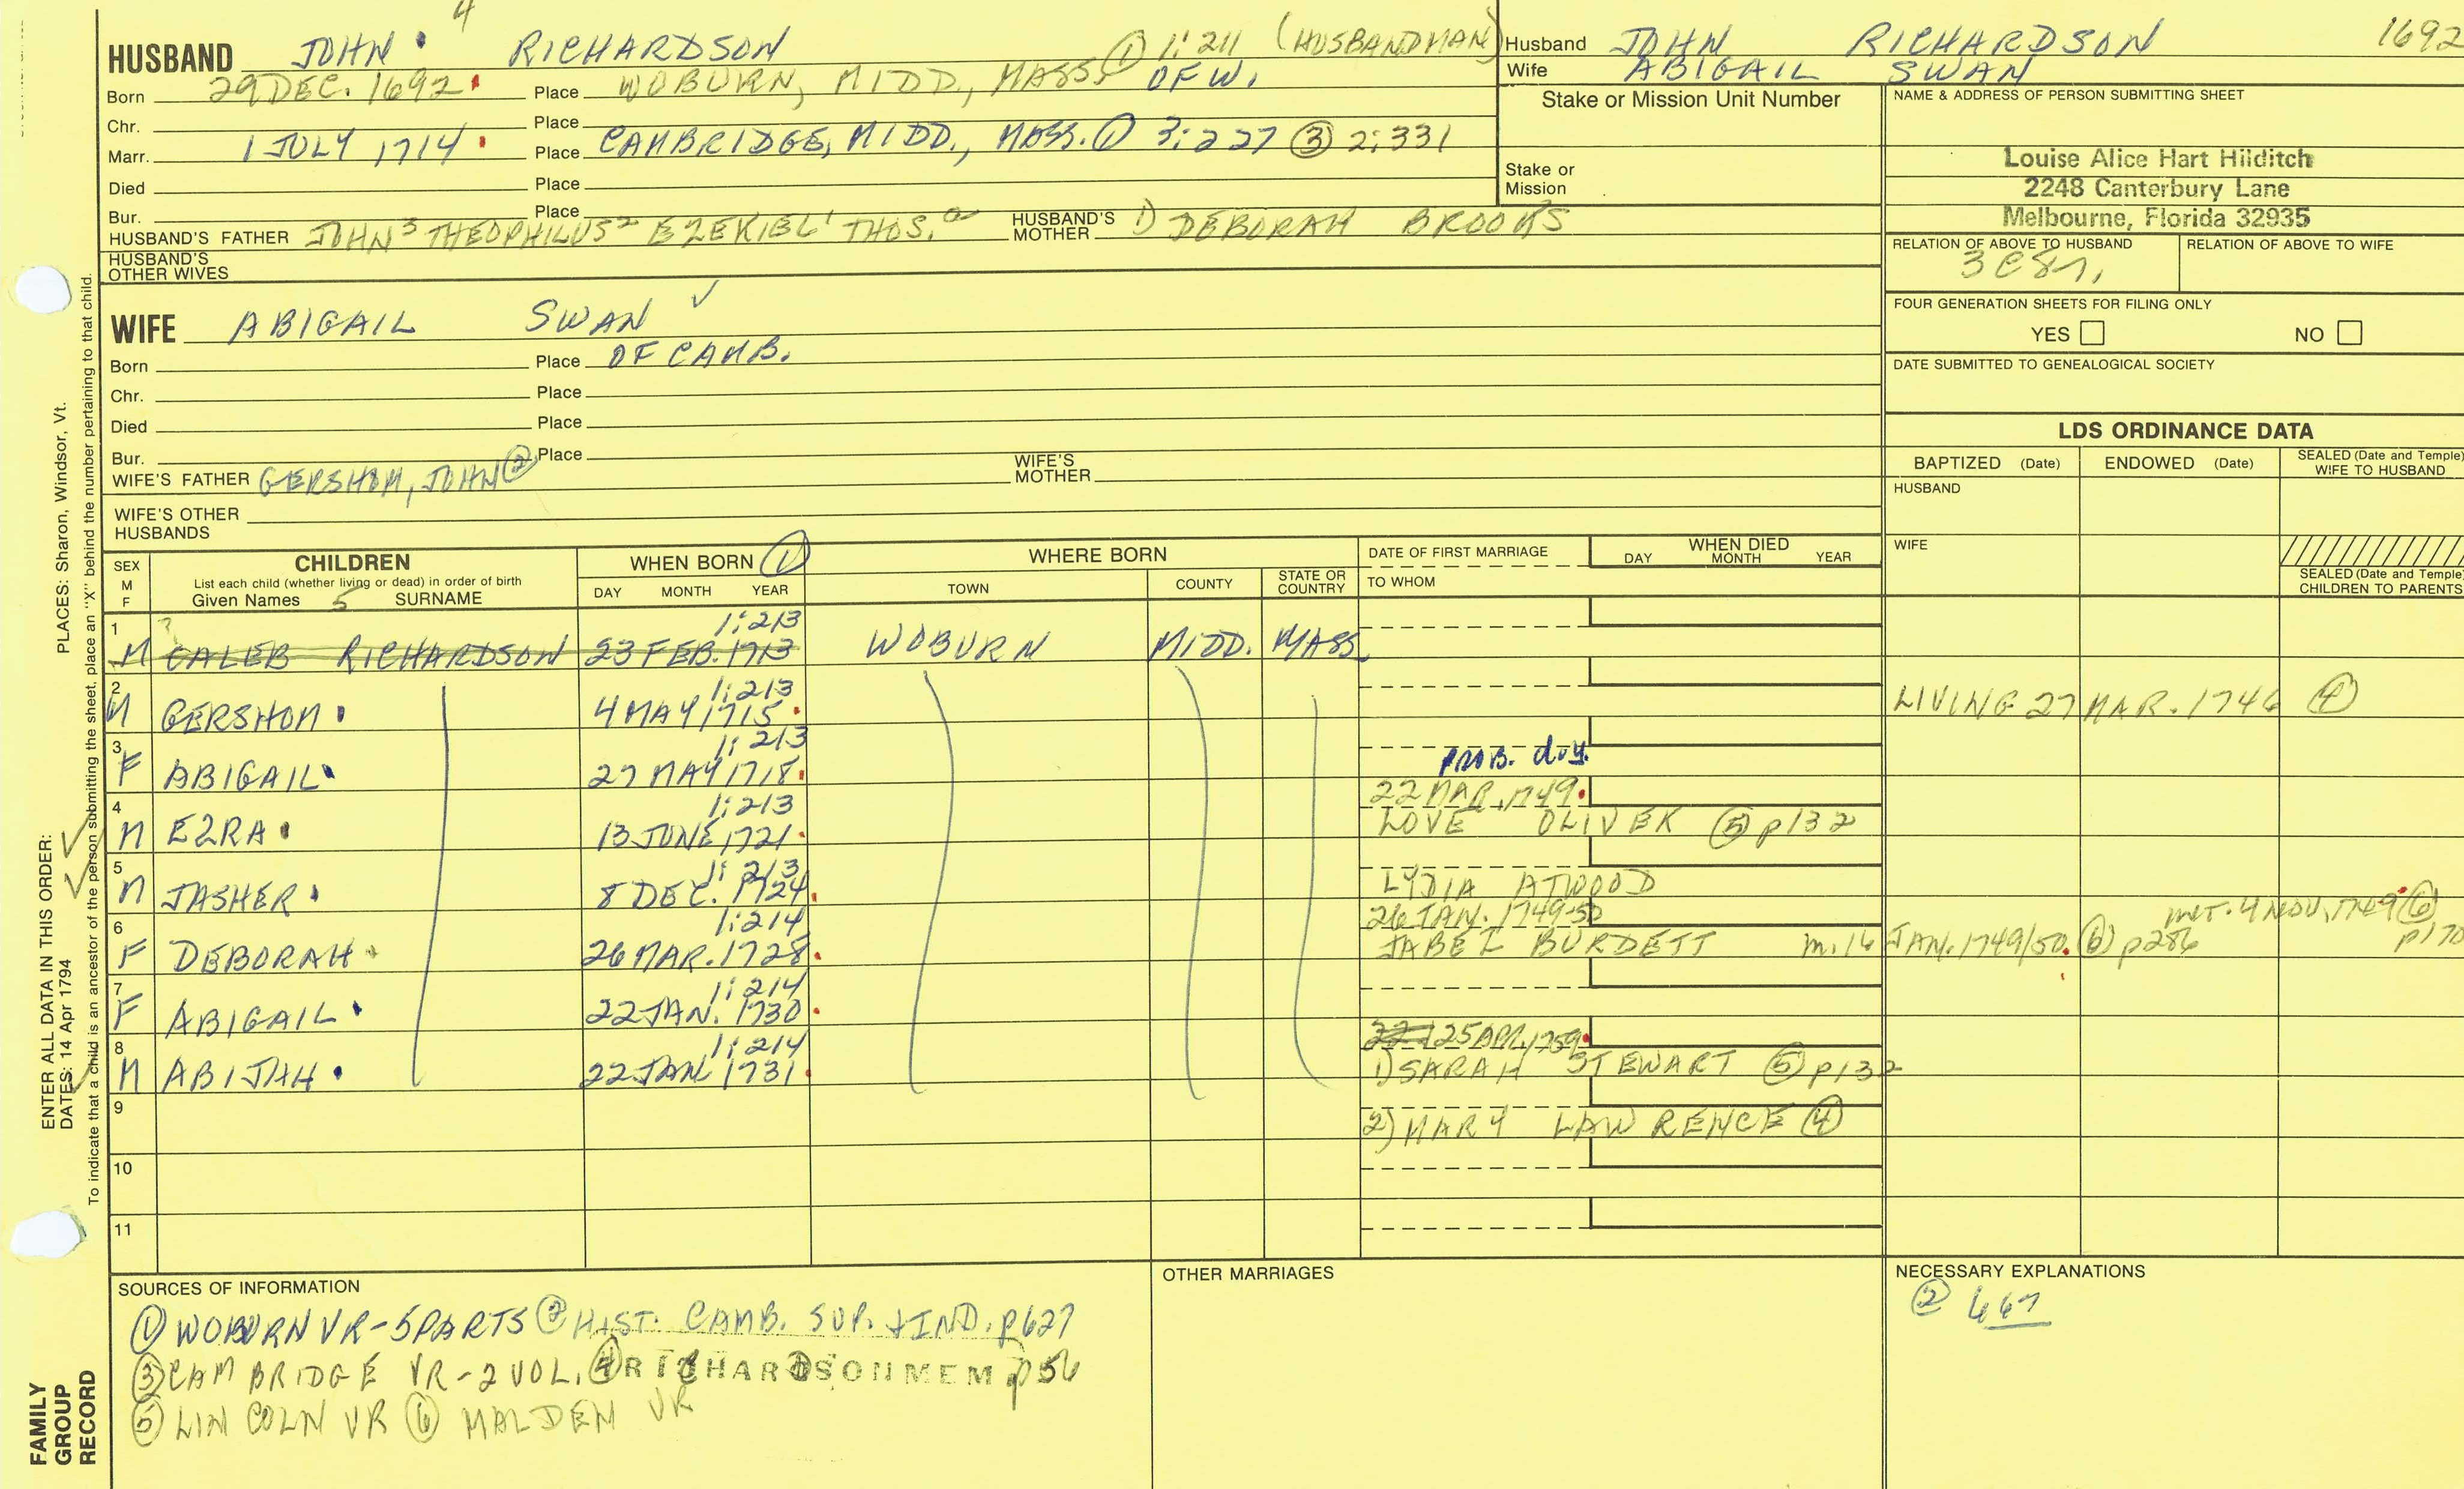 4
HUSBAND JOHN RICHARDSON ① 1:211 (HUSBANDMAN)
Born 29 DEC. 1692 Place WOBURN, MIDD., MASS. OF W.
Chr. Place
Marr. 1 JULY 1714 Place CAMBRIDGE, MIDD., MASS. ① 3:227 ③ 2:331
Died Place
Bur. Place
HUSBAND'S FATHER JOHN³ THEOPHILUS² EZEKIEL¹ THOS.ᵃ HUSBAND'S MOTHER 1) DEBORAH BROOKS
HUSBAND'S OTHER WIVES
Husband JOHN RICHARDSON 1692
Wife ABIGAIL SWAN
Stake or Mission Unit Number
Stake or Mission
NAME & ADDRESS OF PERSON SUBMITTING SHEET
Louise Alice Hart Hilditch
2248 Canterbury Lane
Melbourne, Florida 32935
RELATION OF ABOVE TO HUSBAND RELATION OF ABOVE TO WIFE
3C8r,
FOUR GENERATION SHEETS FOR FILING ONLY
YES NO
DATE SUBMITTED TO GENEALOGICAL SOCIETY
WIFE ABIGAIL SWAN ✓
Born Place OF CAMB.
Chr. Place
Died Place
Bur. Place
WIFE'S FATHER GERSHOM, JOHN ② WIFE'S MOTHER
WIFE'S OTHER HUSBANDS
LDS ORDINANCE DATA
BAPTIZED (Date) ENDOWED (Date) SEALED (Date and Temple) WIFE TO HUSBAND
HUSBAND
WIFE
SEALED (Date and Temple) CHILDREN TO PARENTS
SEX M F
CHILDREN
List each child (whether living or dead) in order of birth
Given Names 5 SURNAME
WHEN BORN ①
DAY MONTH YEAR
WHERE BORN
TOWN COUNTY STATE OR COUNTRY
DATE OF FIRST MARRIAGE
TO WHOM
WHEN DIED
DAY MONTH YEAR
1 ? 1:213
M CALEB RICHARDSON 23 FEB. 1713 WOBURN MIDD. MASS.
2 1:213
M GERSHOM 4 MAY 1715 LIVING 27 MAR. 1746 ④
3 1:213 PROB. d.y.
F ABIGAIL 27 MAY 1718
4 1:213 22 MAR. 1749
M EZRA 13 JUNE 1721 LOVE OLIVER ⑤ p132
5 1:213
M JASHER 8 DEC. 1724 LYDIA ATWOOD
6 1:214 26 JAN. 1749-50 INT. 4 NOV. 1749 ⑥ p170
F DEBORAH 26 MAR. 1728 JABEZ BURDETT m. 16 JAN. 1749/50. ⑥ p286
7 1:214
F ABIGAIL 22 JAN. 1730
8 1:214 25 APR. 1759
M ABIJAH 22 JAN. 1731 1) SARAH STEWART ⑤ p132
9 2) MARY LAWRENCE ④
10
11
SOURCES OF INFORMATION
① WOBURN VR-5PARTS ② HIST. CAMB. SUP. + IND. p627
③ CAMBRIDGE VR-2 VOL. ④ RICHARDSON MEM p56
⑤ LINCOLN VR ⑥ MALDEN VR
OTHER MARRIAGES
NECESSARY EXPLANATIONS
② 667
ENTER ALL DATA IN THIS ORDER:
DATES: 14 Apr 1794 PLACES: Sharon, Windsor, Vt.
To indicate that a child is an ancestor of the person submitting the sheet, place an "X" behind the number pertaining to that child.
FAMILY GROUP RECORD